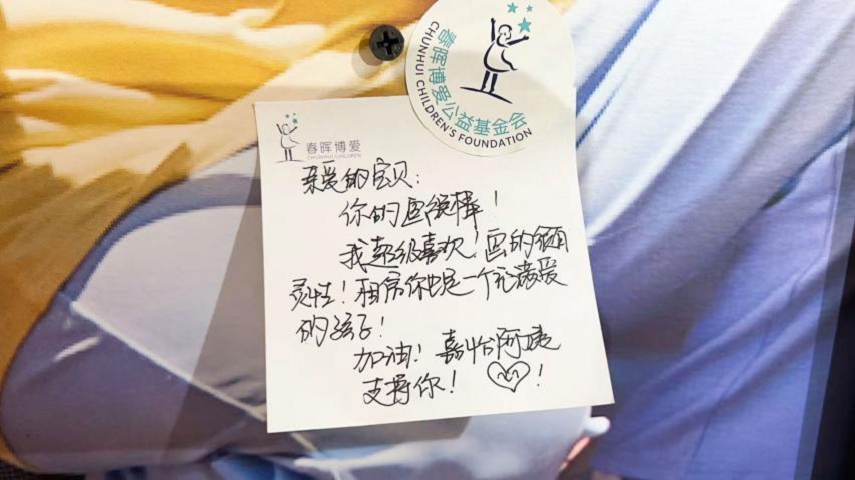 春晖博爱公益基金会
CHUNHUI CHILDREN'S FOUNDATION
春晖博爱
CHUNHUI CHILDREN
亲爱的宝贝：
你的画很棒！
我超级喜欢！画的很有
灵性！相信你也是一个充满爱
的孩子！
加油！嘉怡阿姨
支持你！ !